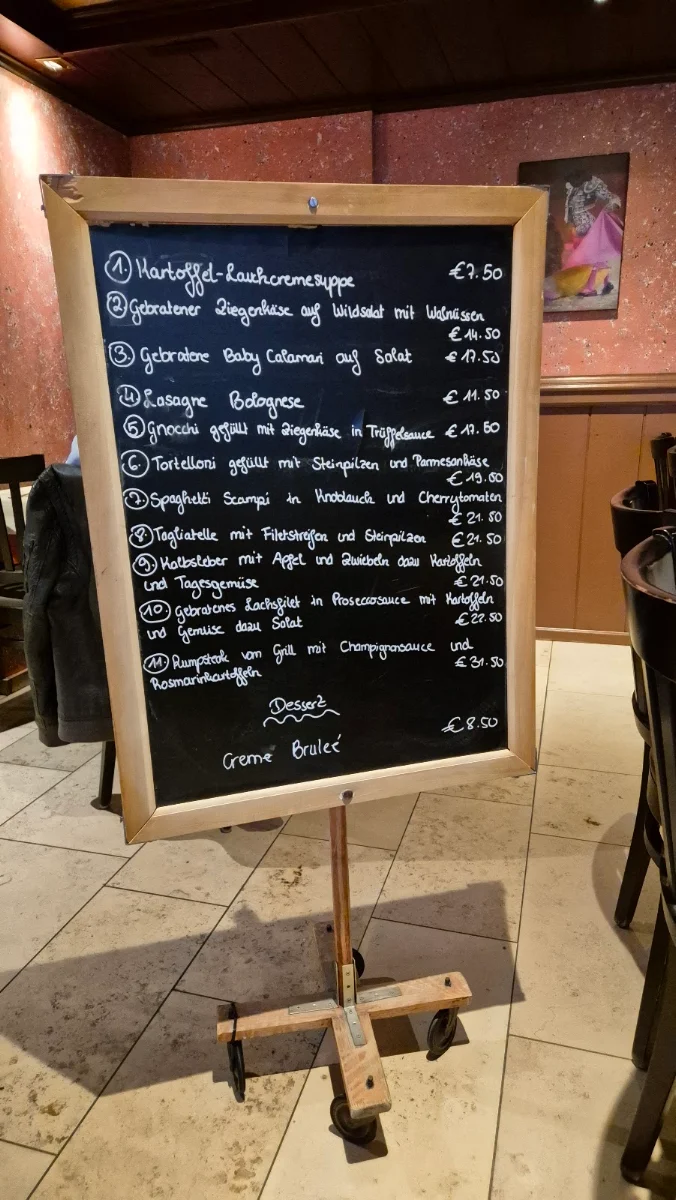 1. Kartoffel-Lauchcremesuppe €7.50
2 Gebratener Ziegenkäse auf Wildsalat mit Walnüssen
€14.50
3. Gebratene Baby Calamari auf Salat €17.50
4 Lasagne Bolognese €11.50
5 Gnocchi gefüllt mit Ziegenkäse in Trüffelsauce €17.50
6. Tortelloni gefüllt mit Steinpilzen und Parmesankäse
€19.50
7. Spaghetti Scampi in Knoblauch und Cherrytomaten
€21.50
8. Tagliatelle mit Filetstreifen und Steinpilzen €21.50
9. Kalbsleber mit Apfel und Zwiebeln dazu Kartoffeln
und Tagesgemüse €21.50
10. Gebratenes Lachsfilet in Proseccosauce mit Kartoffeln
und Gemüse dazu Salat €22.50
11. Rumpsteak vom Grill mit Champignonsauce und
Rosmarinkartoffeln €31.50
Dessert
€8.50
Creme Bruleé